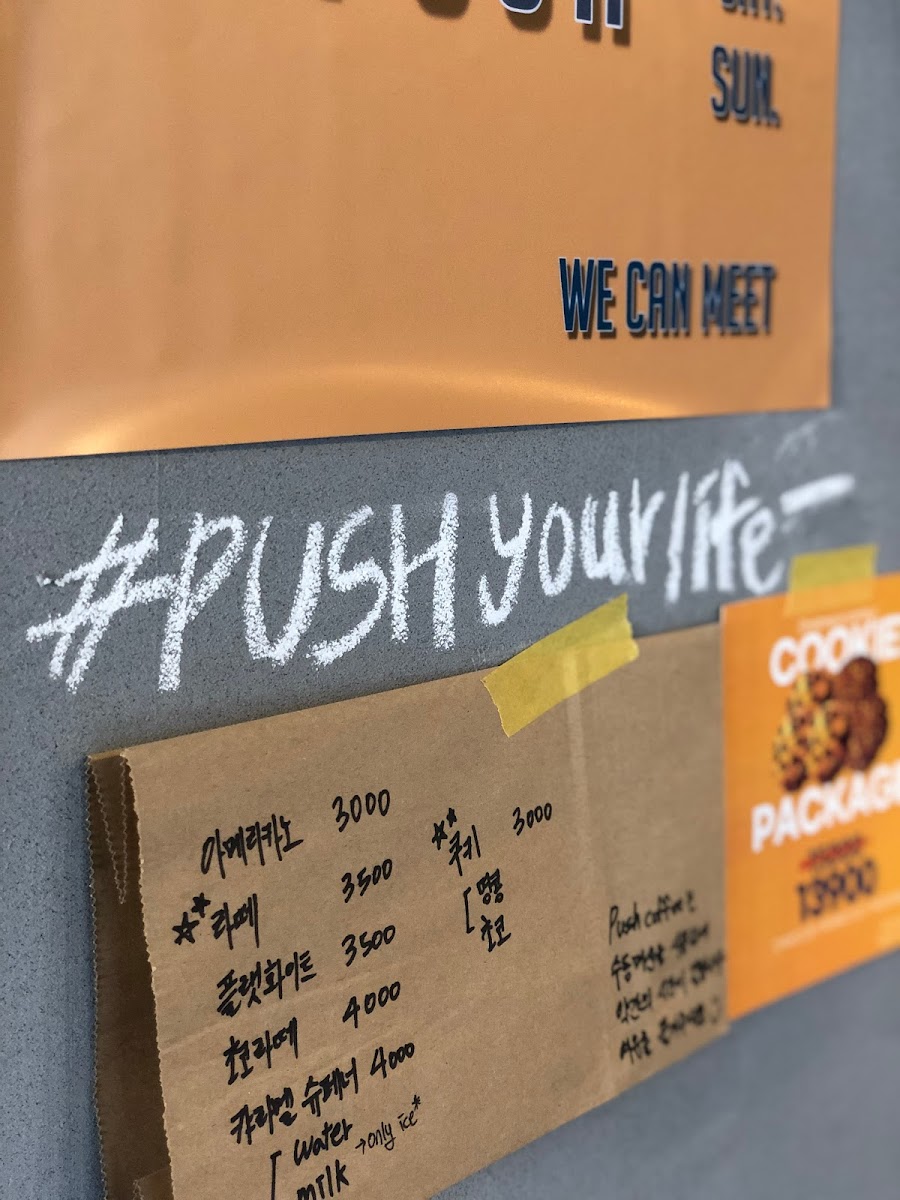 SUN.
WE CAN MEET
#PUSH your life -
COOKIE
PACKAGE
13900
아메리카노 3000
라떼 3500
플랫화이트 3500
초코라떼 4000
캬라멜 슈페너 4000
[ water
milk
→only ice*
쿠키 3000
초코
Push coffee는